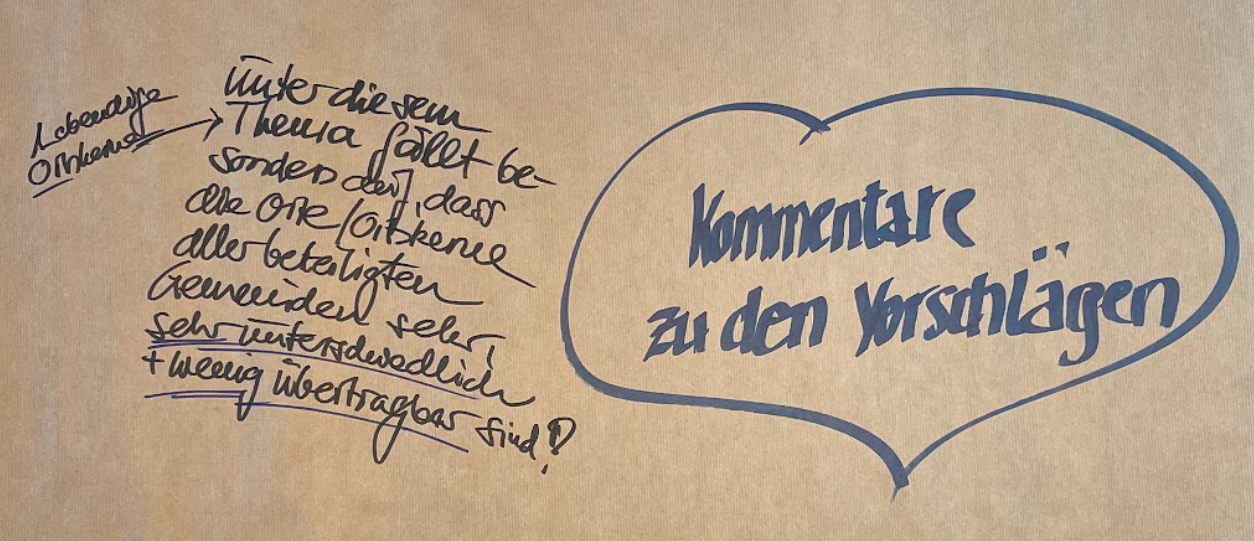 Lebendige
Ortskerne
Unter diesem
Thema fällt be-
sonders auf, dass
die Orte/Ortskerne
aller beteiligten
Gemeinden sehr,
sehr unterschiedlich
+ wenig übertragbar sind!?
Kommentare
zu den Vorschlägen